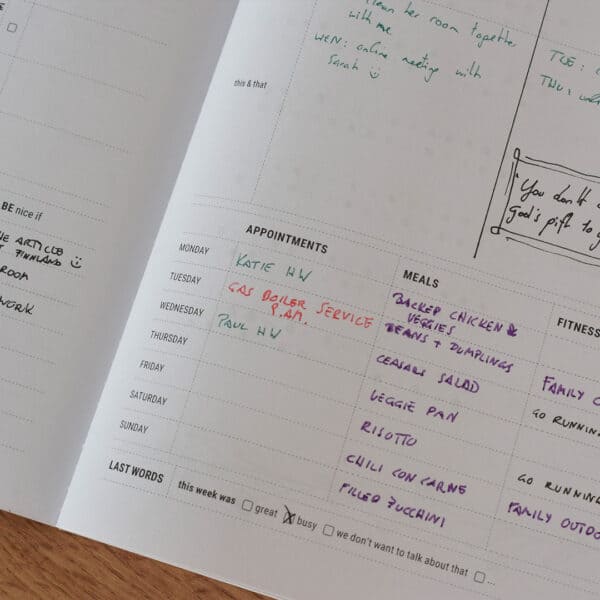 BE nice if
HE ARTICLE
FINNLAND
ROOM
WORK
her room together
with me
WEN: online meeting with
Sarah ☺
this & that
TUE:
THU:
"You don't
God's gift to
APPOINTMENTS
MEALS
FITNESS
MONDAY
KATIE HW
BACKED CHICKEN &
VEGGIES
TUESDAY
GAS BOILER SERVICE
P.AM.
BEANS + DUMPLINGS
WEDNESDAY
PAUL HW
CEASARS SALAD
FAMILY
THURSDAY
VEGGIE PAN
GO RUNNIN
FRIDAY
RISOTTO
SATURDAY
CHILI CON CARNE
GO RUNNIN
SUNDAY
FILLED ZUCCHINI
FAMILY OUTDO
LAST WORDS
this week was ☐ great ☒ busy ☐ we don't want to talk about that ☐...